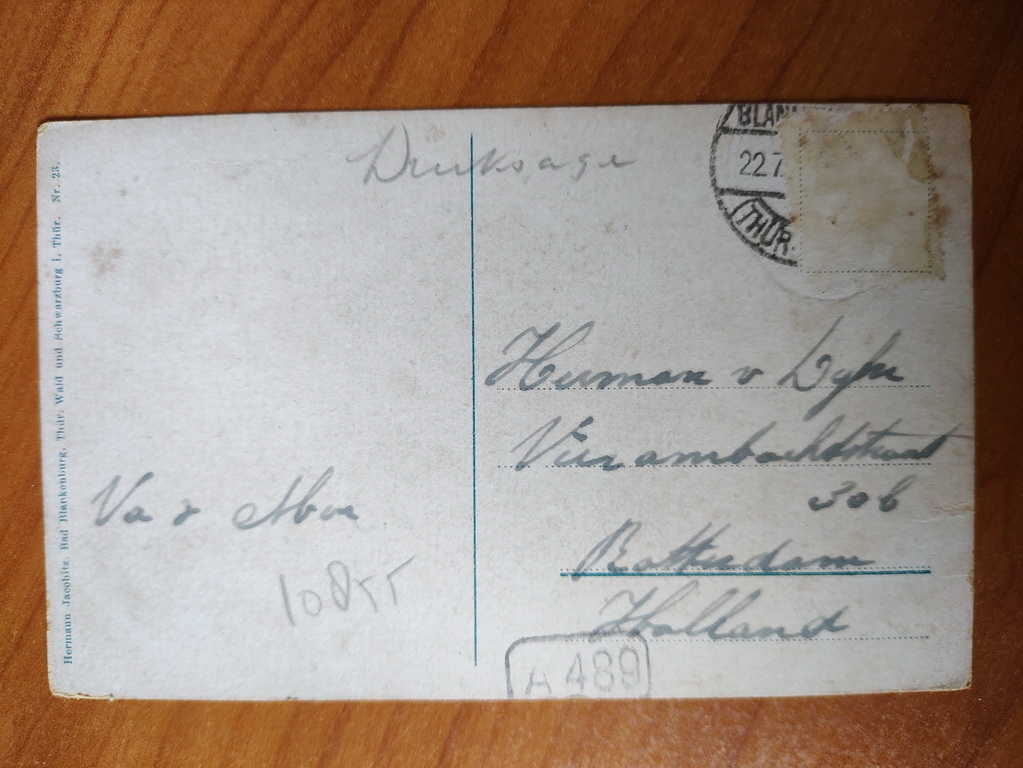 Drucksage
BLAN
22.7
THÜR.
Herman v Dyke
Vierambachtstraat
30b
Rotterdam
Holland
Va & Moe
10855
A 489
Hermann Jacobitz, Bad Blankenburg, Thür. Wald und Schwarzburg i. Thür. Nr. 23.